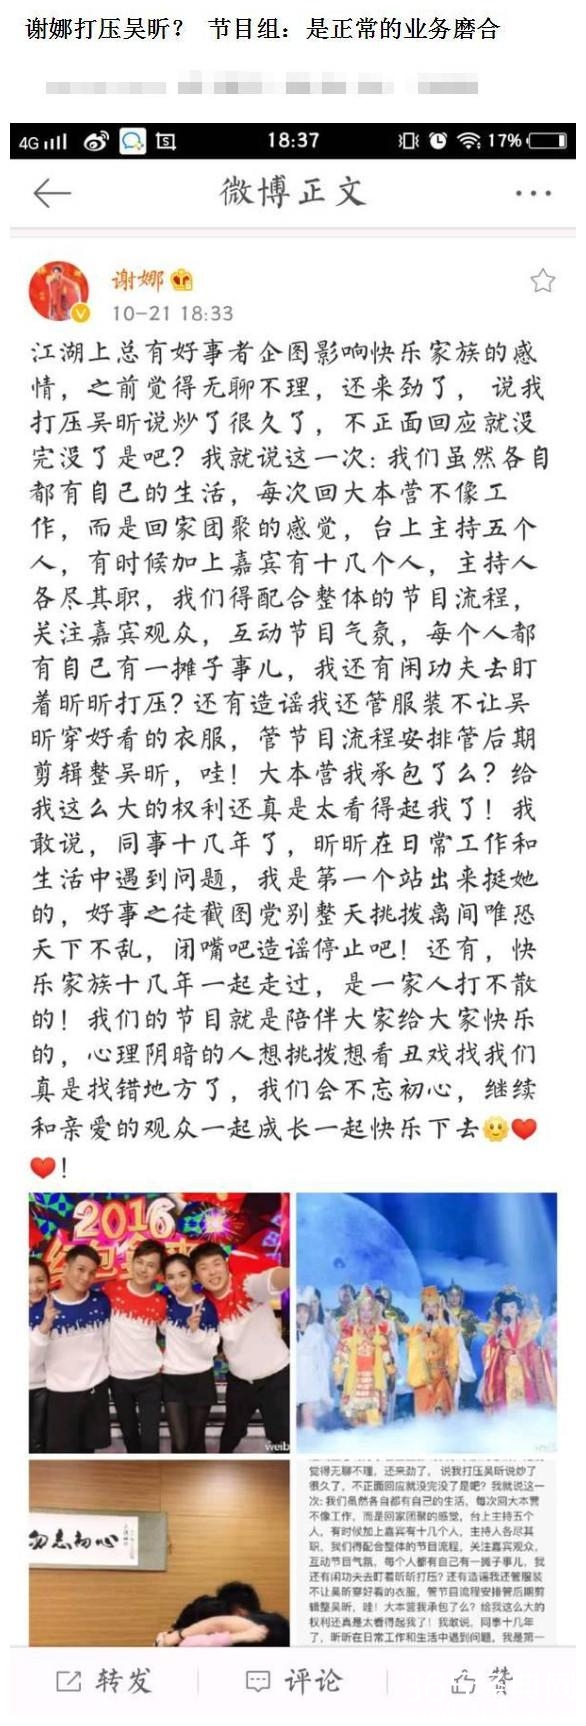 谢娜打压吴昕？ 节目组：是正常的业务磨合
4G 18:37 17%
微博正文
谢娜
10-21 18:33
江湖上总有好事者企图影响快乐家族的感
情，之前觉得无聊不理，还来劲了， 说我
打压吴昕说炒了很久了，不正面回应就没
完没了是吧？我就说这一次：我们虽然各自
都有自己的生活，每次回大本营不像工
作，而是回家团聚的感觉，台上主持五个
人，有时候加上嘉宾有十几个人，主持人
各尽其职，我们得配合整体的节目流程，
关注嘉宾观众，互动节目气氛，每个人都
有自己有一摊子事儿，我还有闲功夫去盯
着昕昕打压？还有造谣我还管服装不让吴
昕穿好看的衣服，管节目流程安排管后期
剪辑整吴昕，哇！大本营我承包了么？给
我这么大的权利还真是太看得起我了！我
敢说，同事十几年了，昕昕在日常工作和
生活中遇到问题，我是第一个站出来挺她
的，好事之徒截图党别整天挑拨离间唯恐
天下不乱，闭嘴吧造谣停止吧！还有，快
乐家族十几年一起走过，是一家人打不散
的！我们的节目就是陪伴大家给大家快乐
的，心理阴暗的人想挑拨想看丑戏找我们
真是找错地方了，我们会不忘初心，继续
和亲爱的观众一起成长一起快乐下去
！
2016
勿忘初心
觉得无聊不理，还来劲了， 说我打压吴昕说炒了
很久了，不正面回应就没完没了是吧？我就说这一
次：我们虽然各自都有自己的生活，每次回大本营
不像工作，而是回家团聚的感觉，台上主持五个
人，有时候加上嘉宾有十几个人，主持人各尽其
职，我们得配合整体的节目流程，关注嘉宾观众，
互动节目气氛，每个人都有自己有一摊子事儿，我
还有闲功夫去盯着昕昕打压？还有造谣我还管服装
不让吴昕穿好看的衣服，管节目流程安排管后期剪
辑整吴昕，哇！大本营我承包了么？给我这么大的
权利还真是太看得起我了！我敢说，同事十几年
了，昕昕在日常工作和生活中遇到问题，我是第一
转发 评论 赞